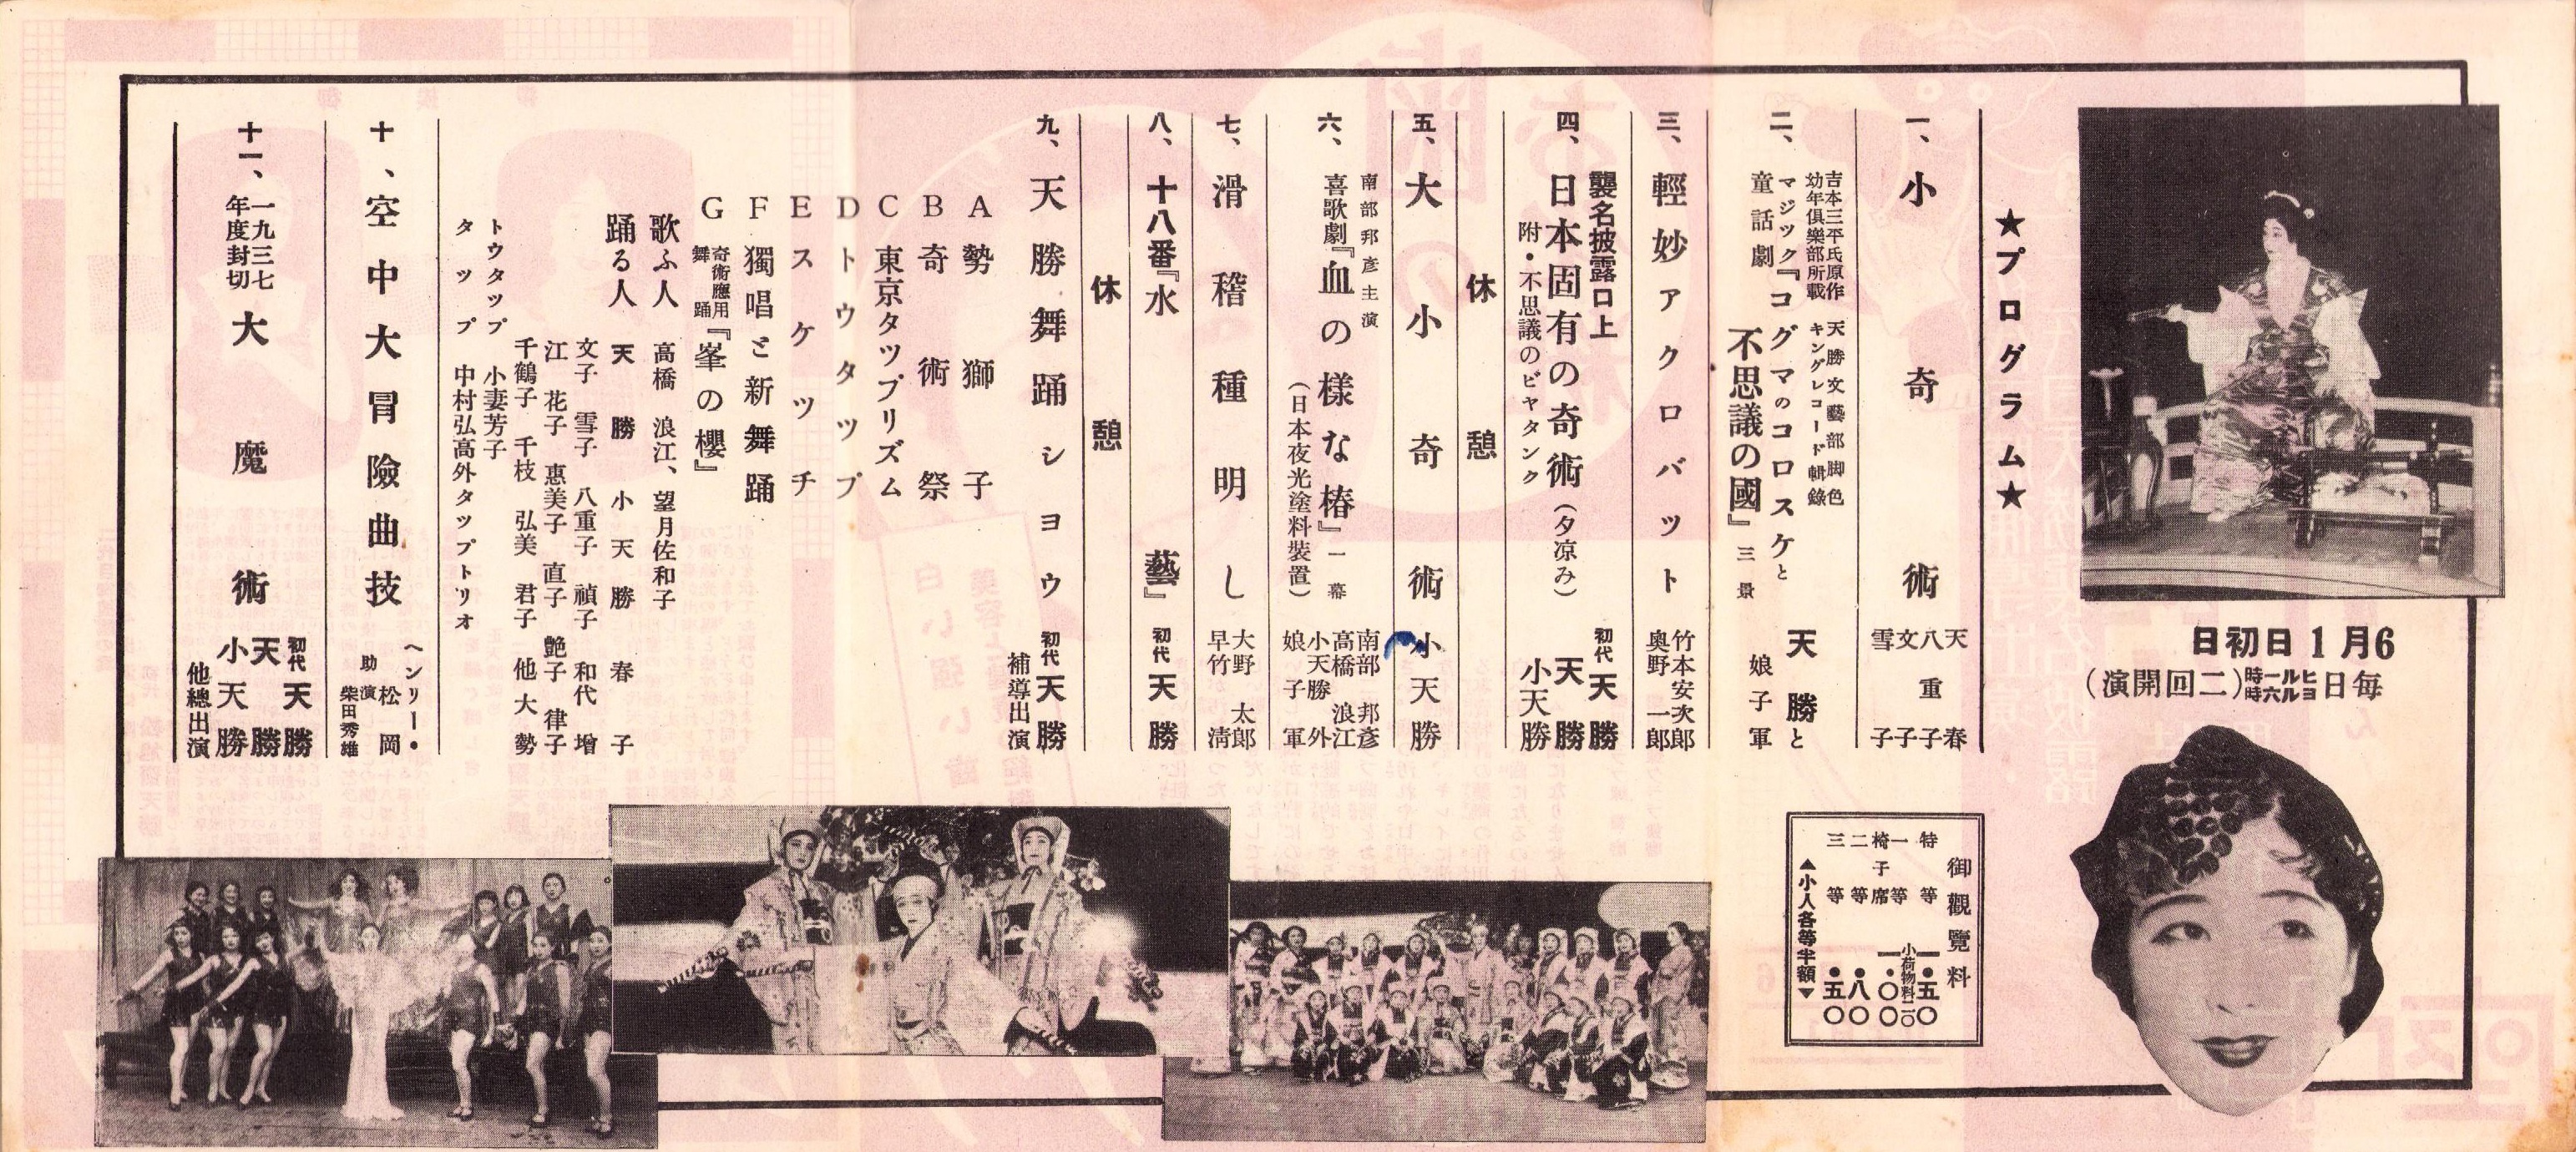 ★プログラム★
6月1日初日
毎日ヒルー時ヨル六時(二回開演)
一、小奇術
天春
八重子
文子
雪子
二、
吉本三平氏原作
幼年倶樂部所載
天勝文藝部脚色
キングレコード輯錄
マジック童話劇
『コグマのコロスケと
不思議の國』三景
天勝と
娘子軍
三、輕妙アクロバット
竹本安次郎
奥野一郎
四、
襲名披露口上
日本固有の奇術(夕凉み)
附・不思議のビヤタンク
初代天勝
天勝
小天勝
休憩
五、大小奇術
小天勝
六、
南部邦彦主演
喜歌劇『血の樣な椿』一幕
(日本夜光塗料裝置)
南部邦彦
高橋浪江
小天勝外
娘子軍
七、滑稽種明し
大野太郎
早竹清
八、十八番『水藝』
初代天勝
休憩
九、天勝舞踊ショウ
初代天勝
補導出演
A 勢獅子
B 奇術祭
C 東京タップリズム
D トウタップ
E スケッチ
F 獨唱と新舞踊
G 奇術應用舞踊『峯の櫻』
歌ふ人 高橋浪江、望月佐和子
踊る人 天勝 小天勝 春子
文子 雪子 八重子 禎子 和代 增
江 花子 惠美子 直子 艶子 律子
千鶴子 千枝 弘美 君子 他大勢
トウタップ 小妻芳子
タップ 中村弘高外タップトリオ
十、空中大冒險曲技
ヘンリー・松岡
助演 柴田秀雄
十一、一九三七年度封切 大魔術
初代天勝
天勝
小天勝
他總出演
御觀覽料
特等 一・五〇
小荷物料一〇
一等椅子席 一・〇〇
二等 ・八〇
三等 ・五〇
▲小人各等半額▼